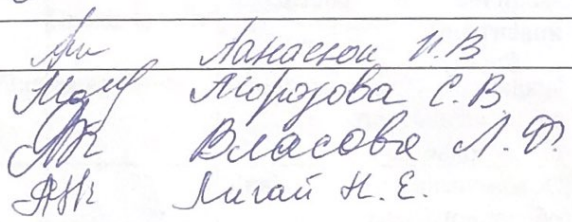 Апасюк И. В
Морозова С. В.
Власова Л. Ф.
Лигай Н. Е.